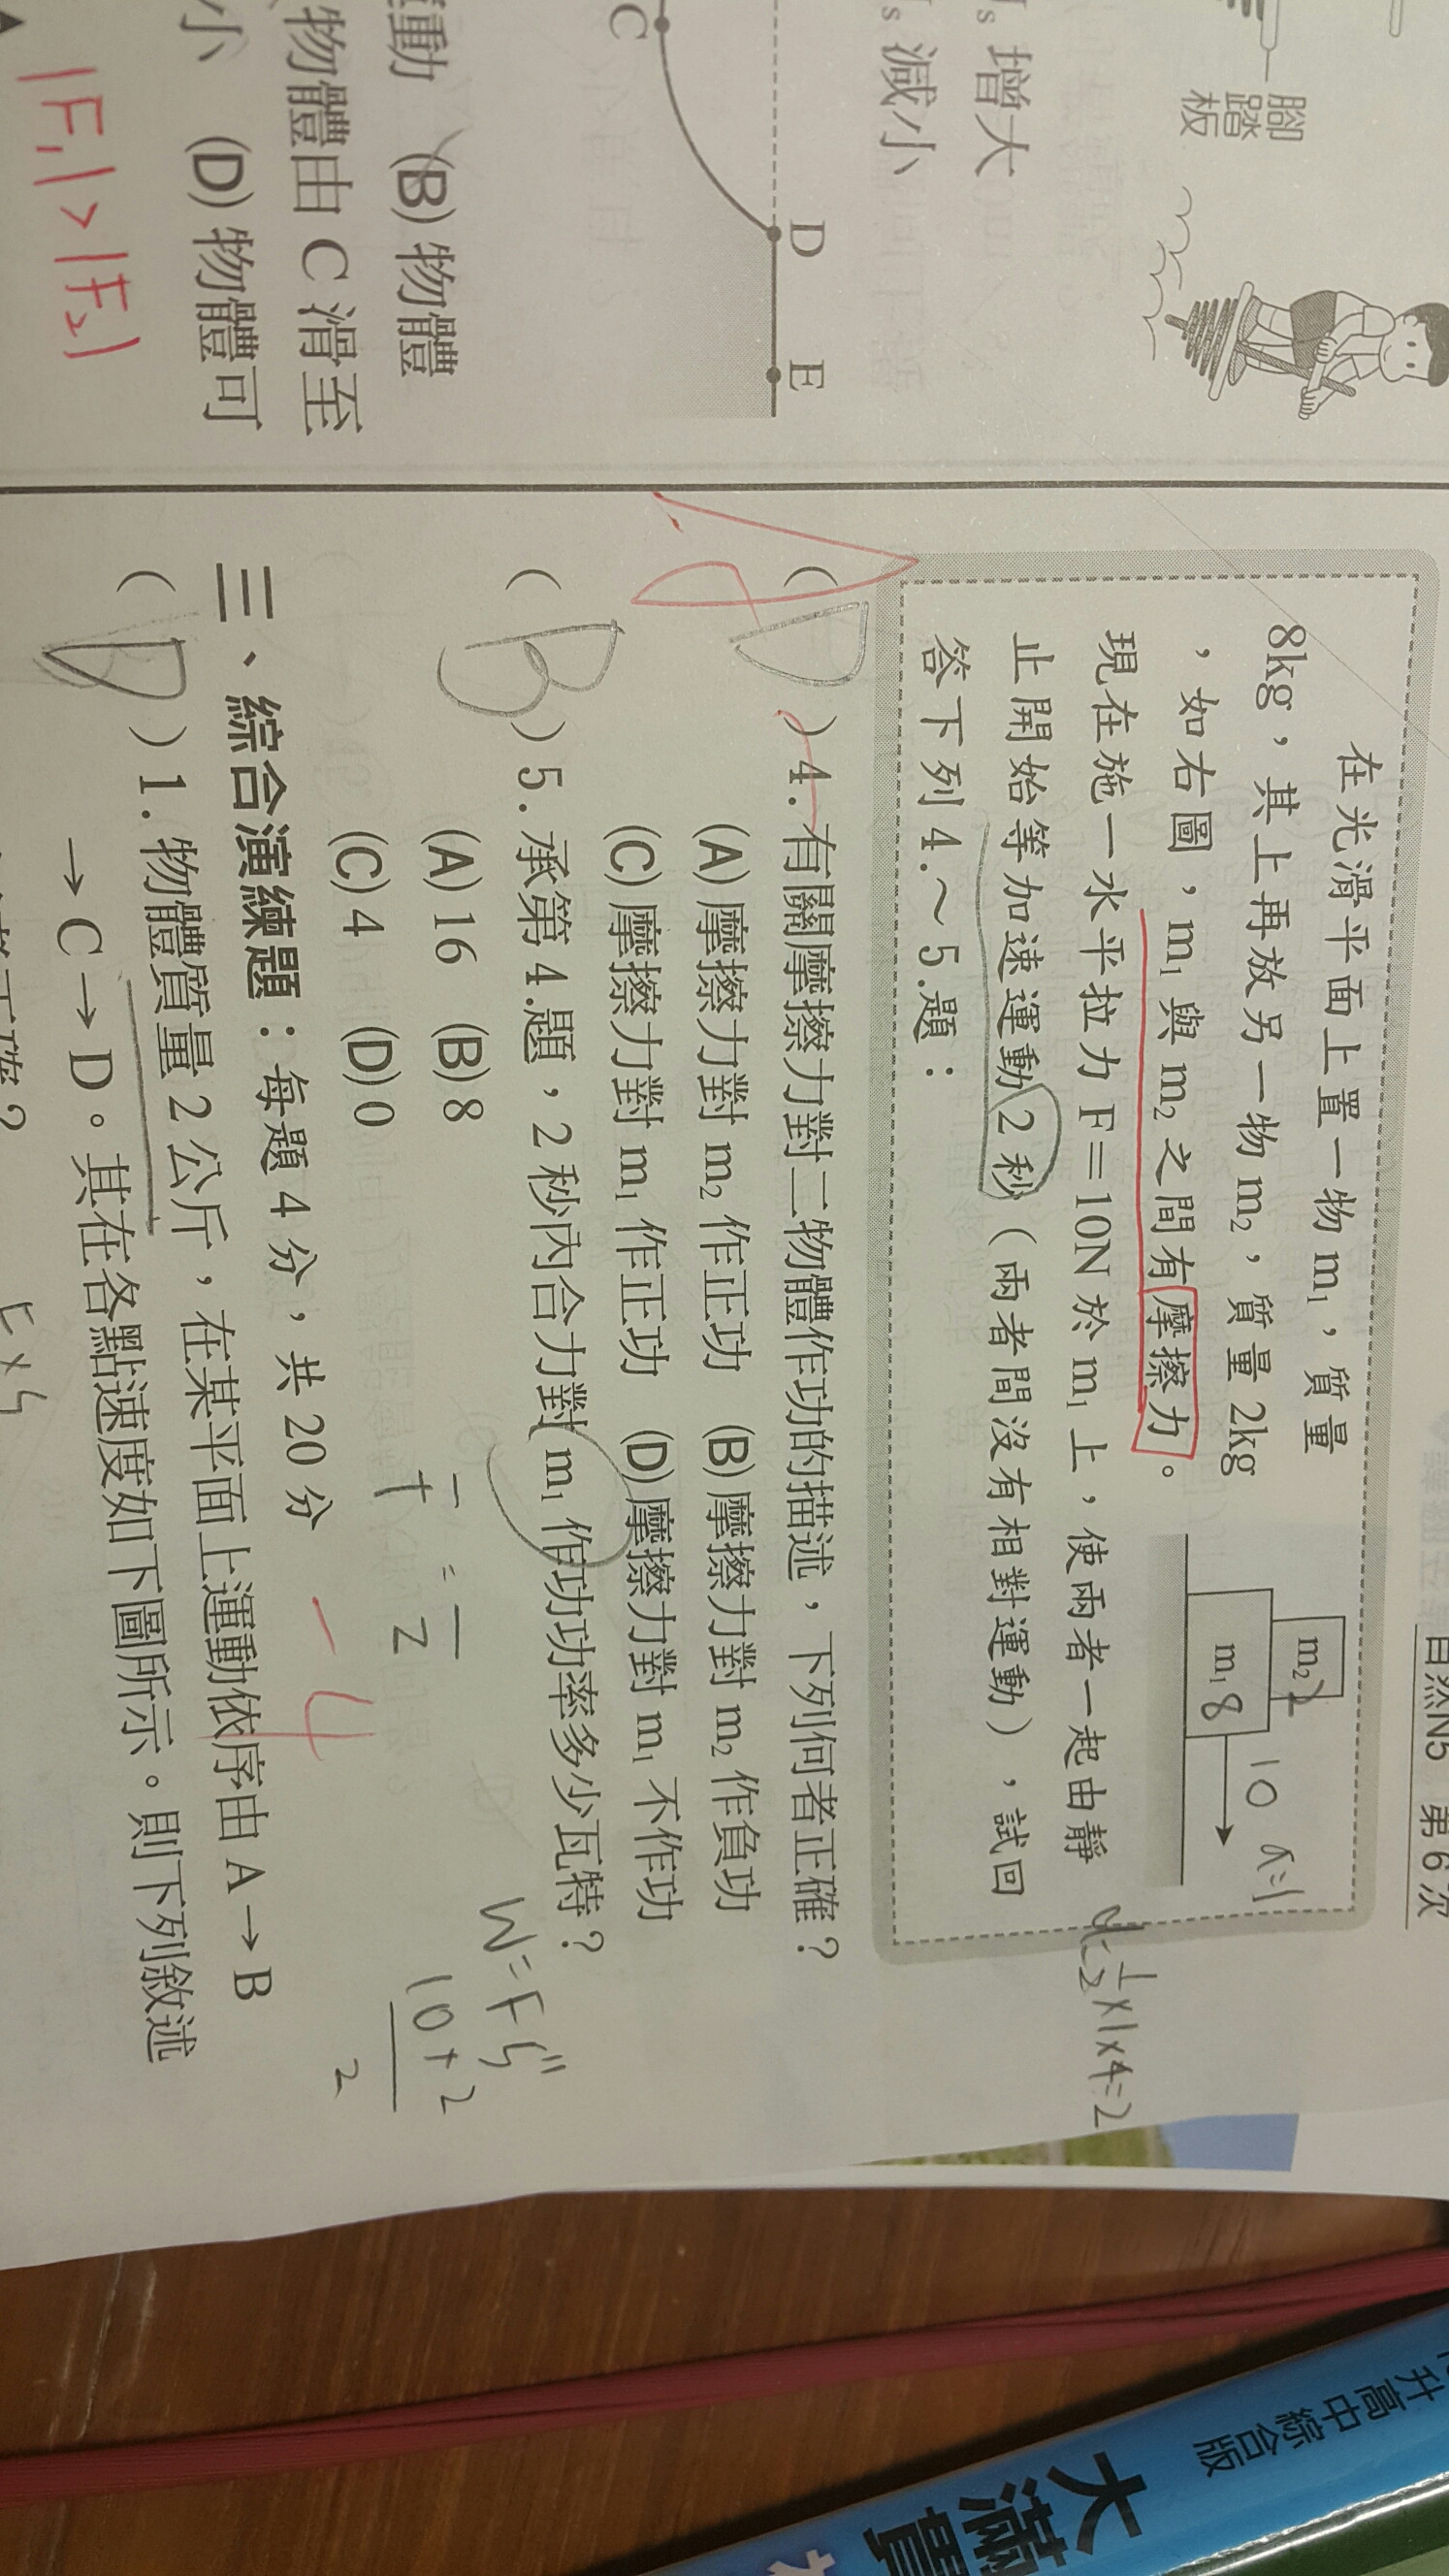 自然N5 第6次
腳
踏
板
增大
減小
C
D
E
動 (B)物體
物體由 C 滑至
小 (D)物體可
|F₁|>|F₂|
在光滑平面上置一物 m₁,質量
8kg,其上再放另一物 m₂,質量 2kg
,如右圖,m₁ 與 m₂ 之間有摩擦力。
現在施一水平拉力 F=10N 於 m₁ 上,使兩者一起由靜
止開始等加速運動 2 秒(兩者間沒有相對運動),試回
答下列 4.~5.題:
m₂ 2
m₁ 8
10 a=1
½×1×4=2
( D )4. 有關摩擦力對二物體作功的描述,下列何者正確?
(A)摩擦力對 m₂ 作正功 (B)摩擦力對 m₂ 作負功
(C)摩擦力對 m₁ 作正功 (D)摩擦力對 m₁ 不作功
( B )5. 承第 4.題,2 秒內合力對 m₁ 作功功率多少瓦特?
(A)16 (B)8
(C)4 (D)0
W=FS
10+2
2
三、綜合演練題:每題 4 分,共 20 分 -4
( D )1. 物體質量 2 公斤,在某平面上運動依序由 A→B
→C→D。其在各點速度如下圖所示。則下列敘述
升高中綜合版
大滿貫